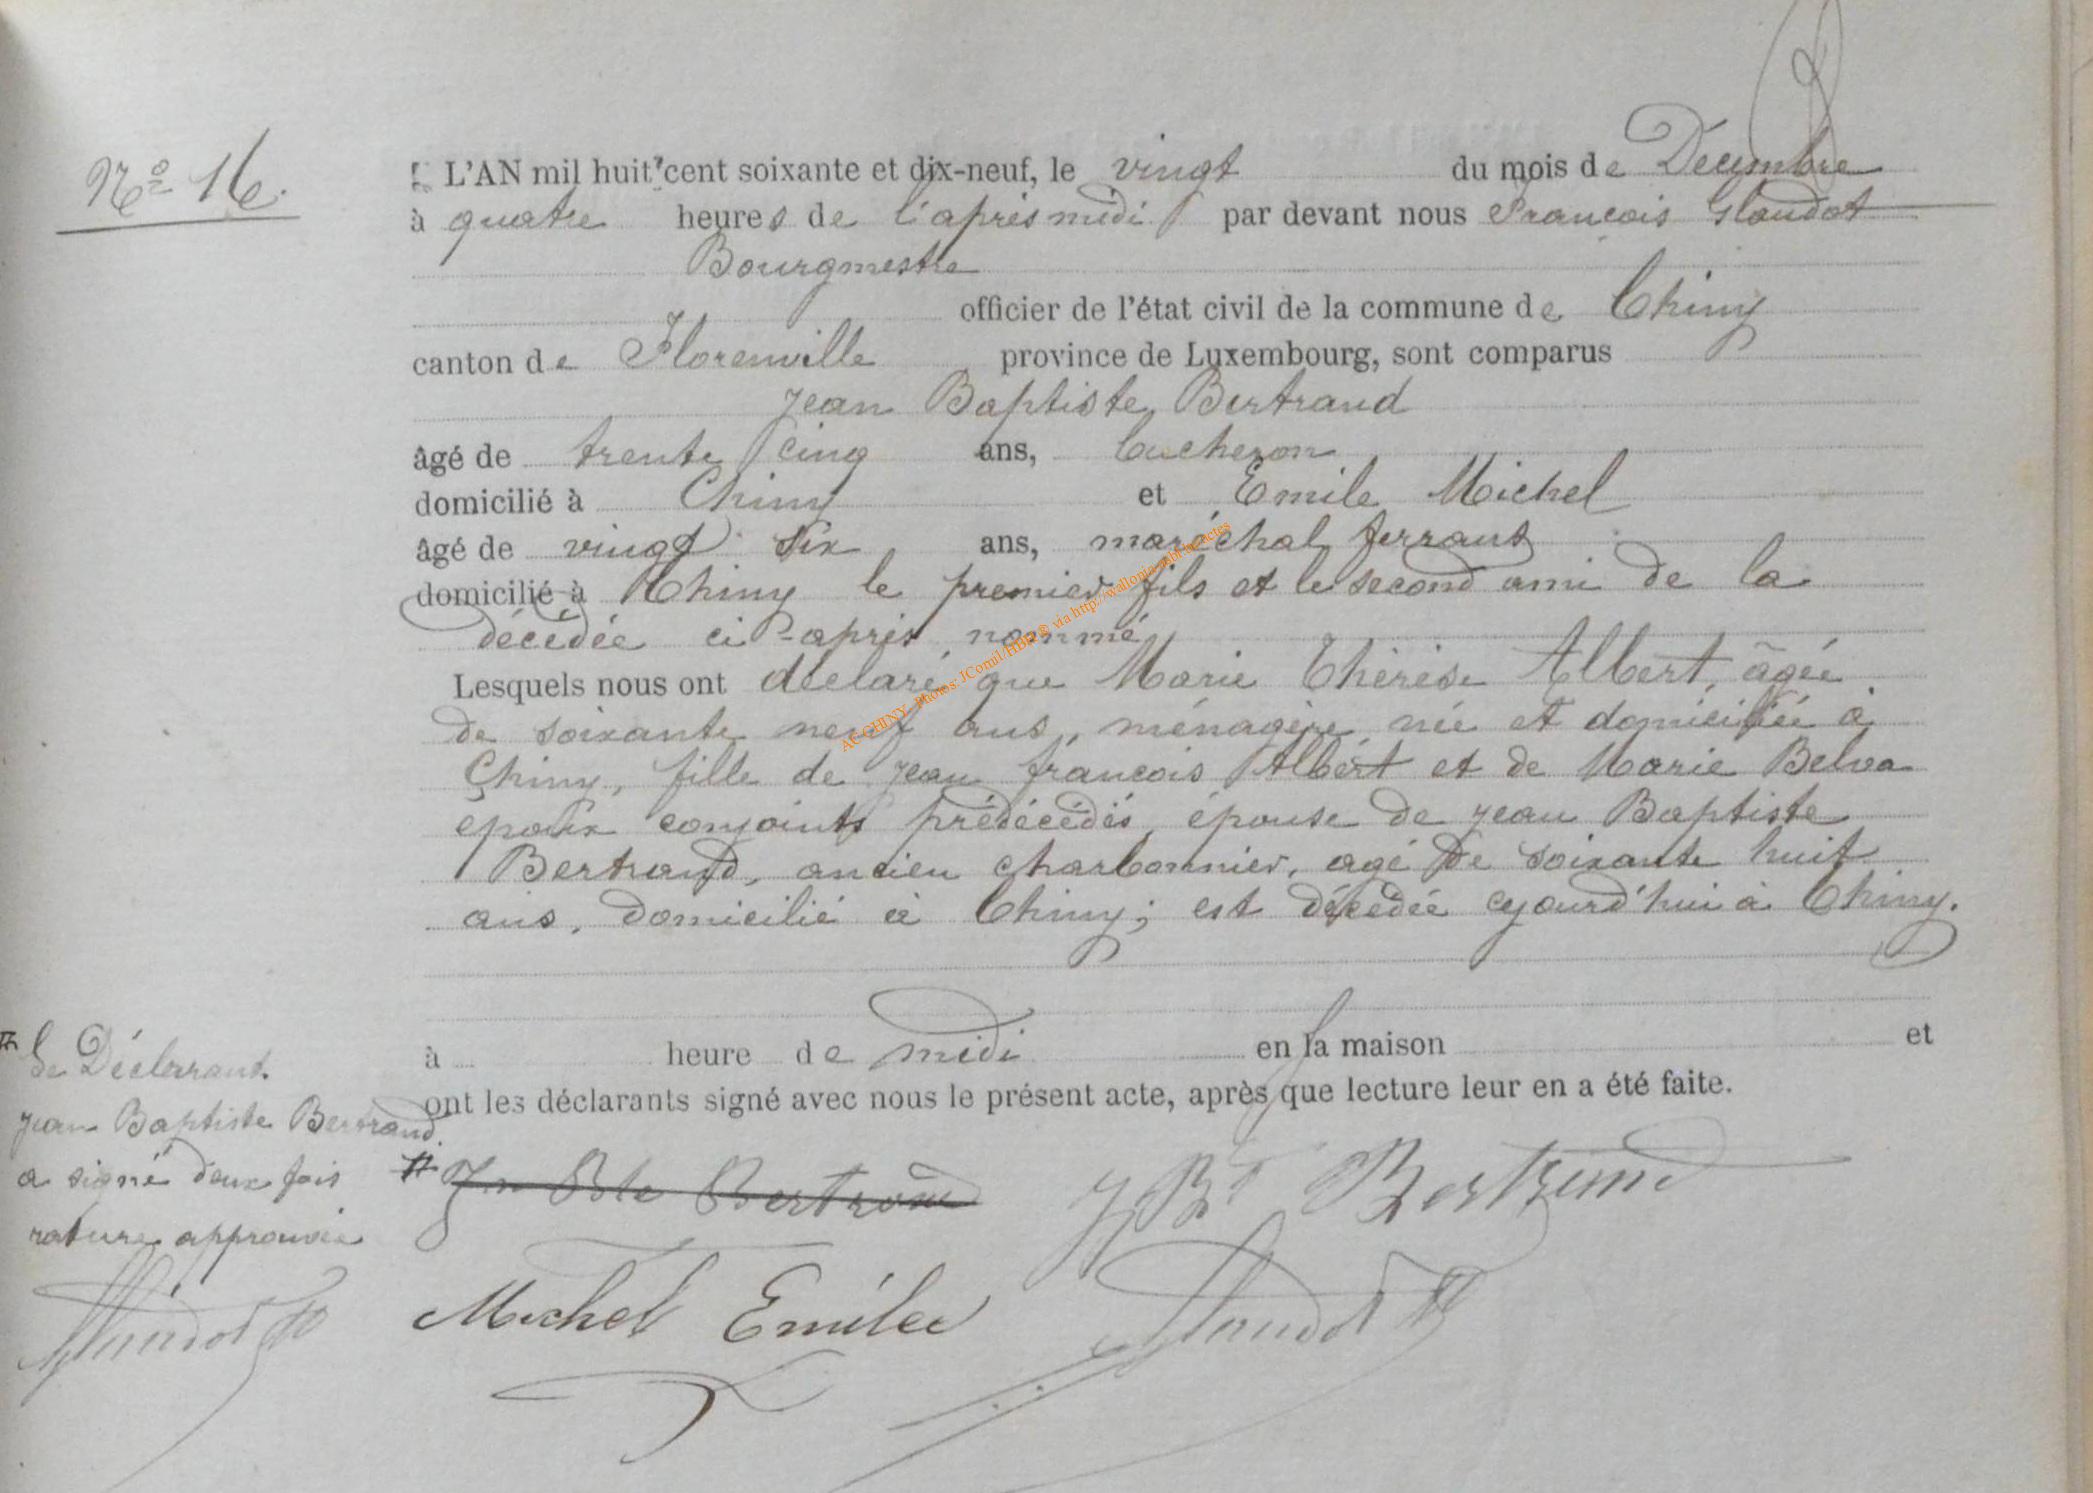 No 16.
L'AN mil huit cent soixante et dix-neuf, le vingt du mois de Décembre
à quatre heures de l'après midi par devant nous François Glaudot
Bourgmestre
officier de l'état civil de la commune de Chiny
canton de Florenville province de Luxembourg, sont comparus
Jean Baptiste Bertrand
âgé de trente cinq ans, bucheron
domicilié à Chiny et Emile Michel
âgé de vingt six ans, maréchal ferrant
domicilié à Chiny le premier fils et le second ami de la
décédée ci-après nommé
Lesquels nous ont déclaré que Marie Thérèse Albert, âgée
de soixante neuf ans, ménagère née et domiciliée à
Chiny, fille de Jean françois Albert et de Marie Belva
époux conjoints prédécédés, épouse de Jean Baptiste
Bertrand, ancien charbonnier, agé de soixante huit
ans, domicilié à Chiny; est décédée cejourd'hui à Chiny.
à heure de midi en la maison et
ont les déclarants signé avec nous le présent acte, après que lecture leur en a été faite.
Le Déclarant
Jean Baptiste Bertrand
a signé deux fois
rature approuvée
Glaudot
Jn Bte Bertrand J Bt Bertrand
Michel Emile Glaudot
AC CHINY Photos: JComil/HBP@ via http://wallonia-asbl.be/actes